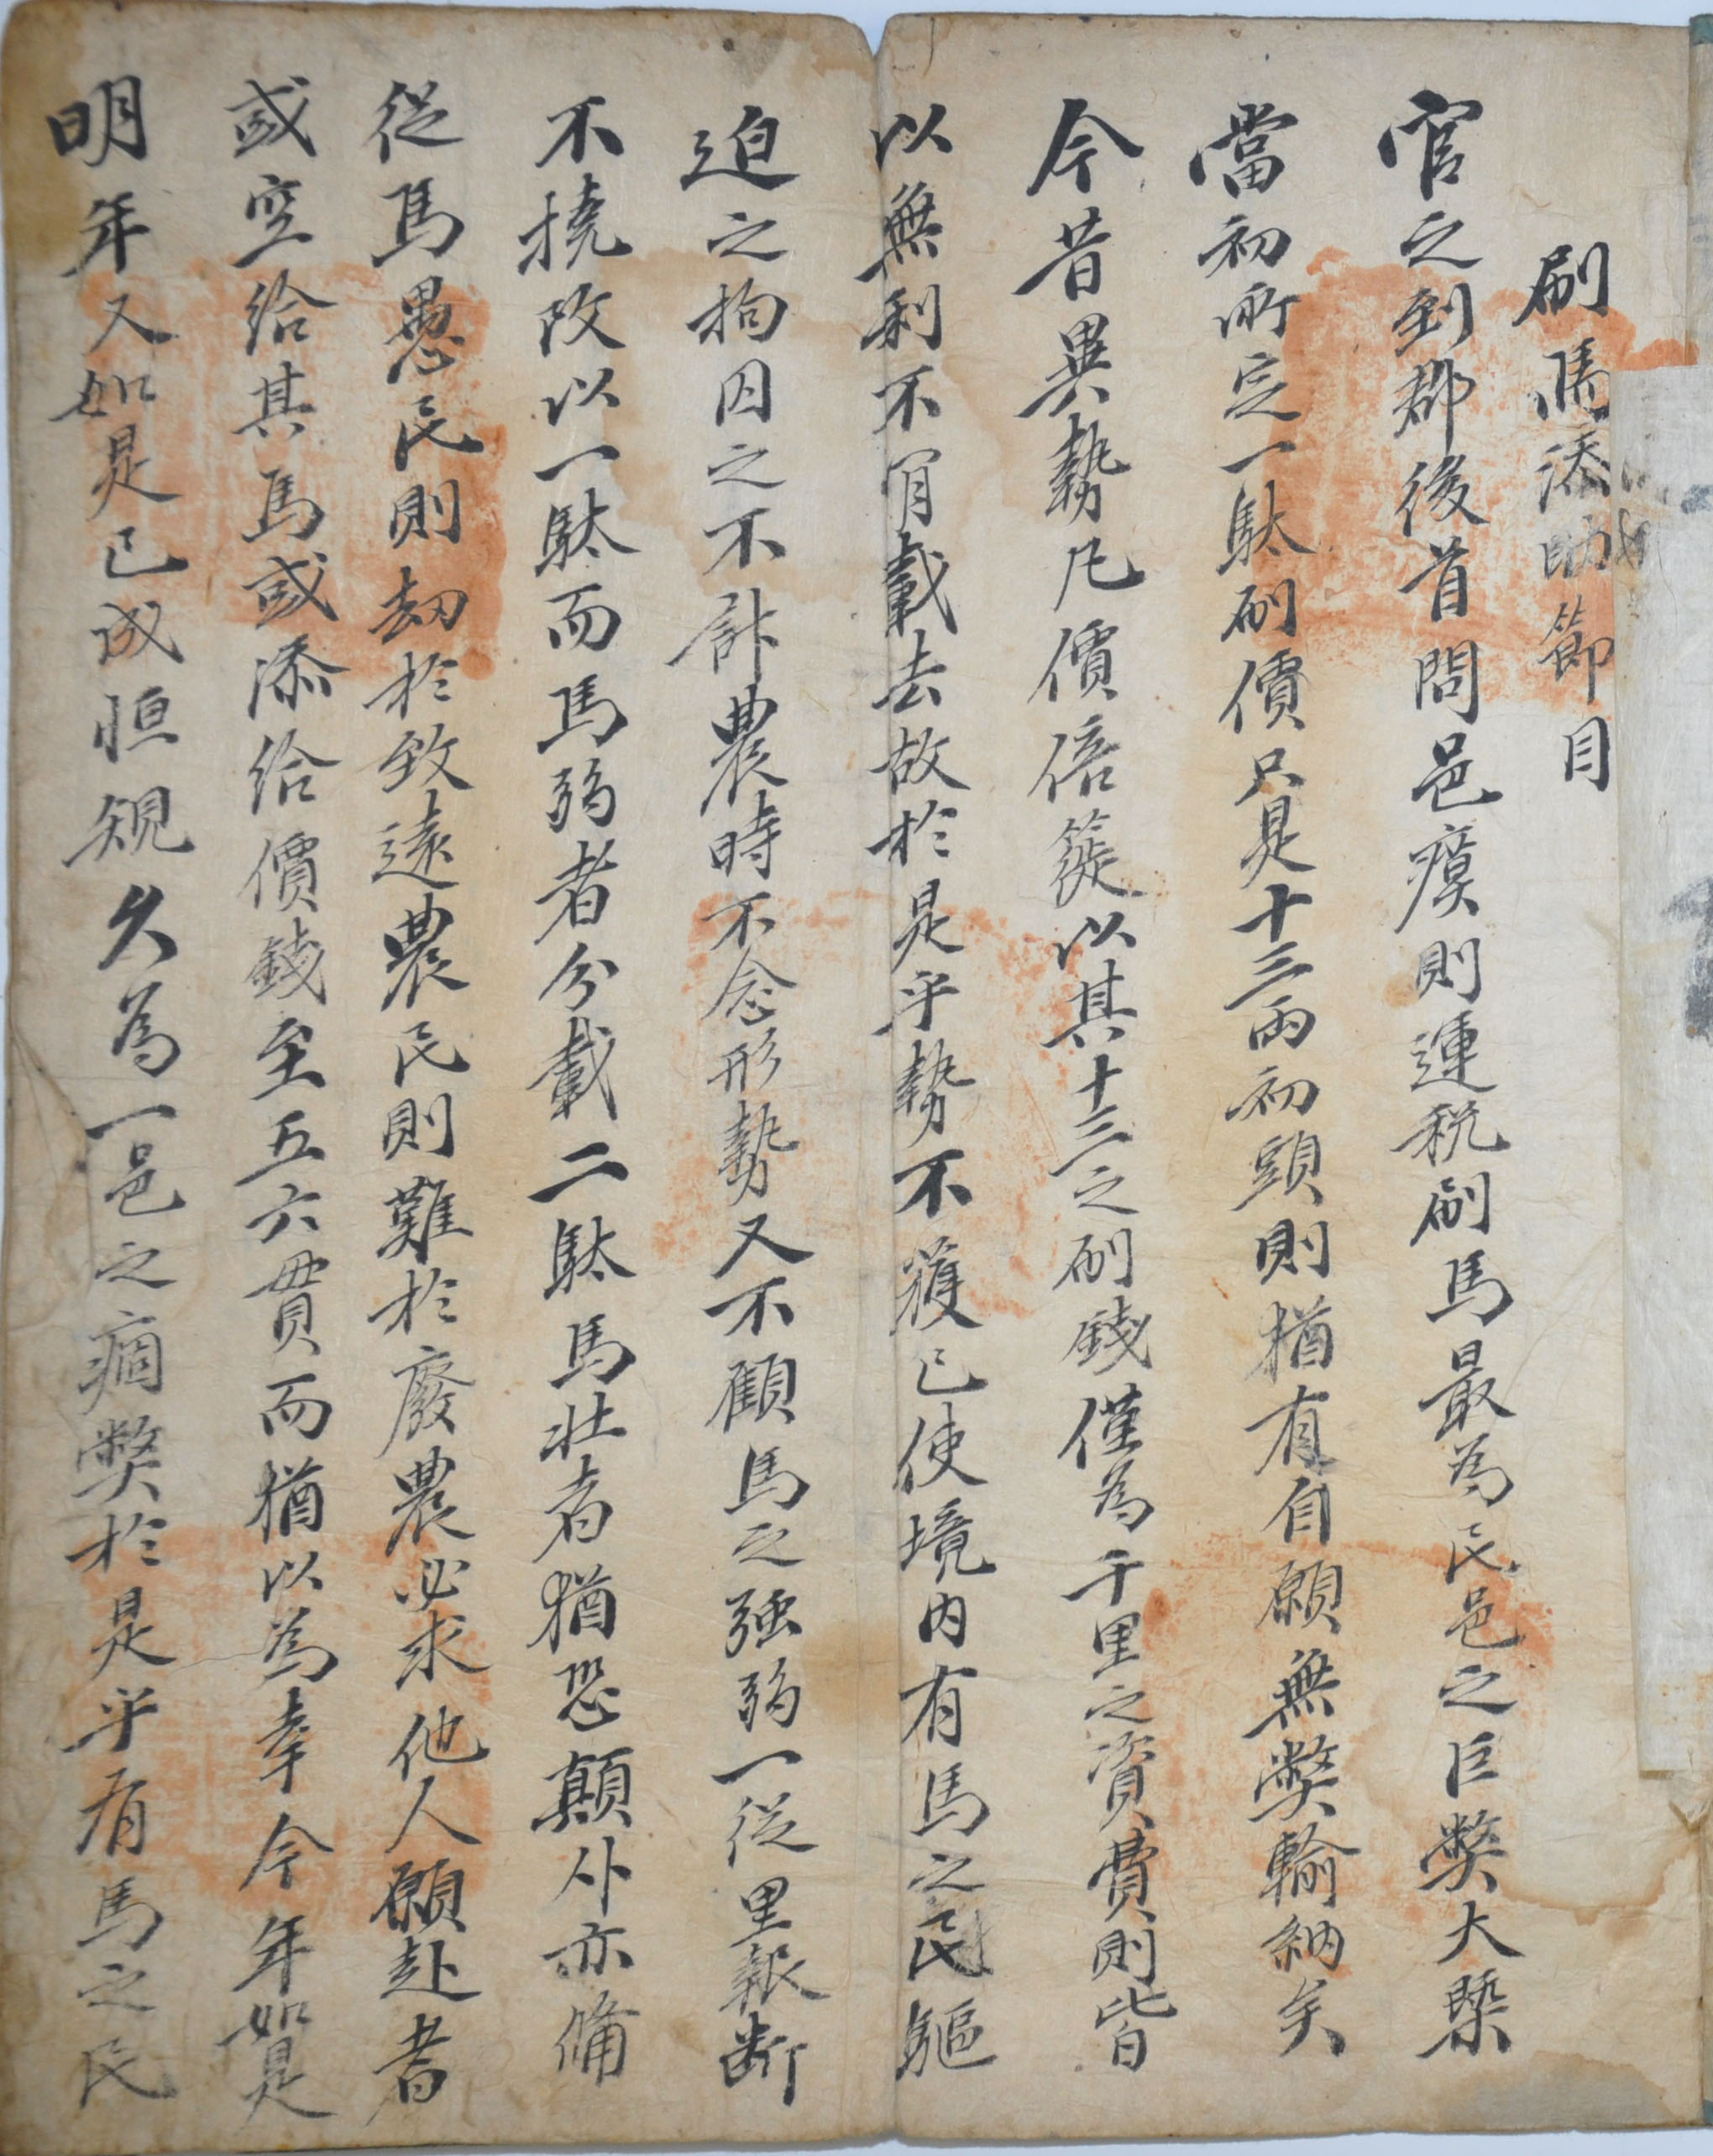 刷馬添助節目
官之到郡後首問邑瘼則運税刷馬最為民邑之巨弊大槩
當初所定一駄刷價只是十三兩初頭則猶有自願無弊輸納矣
今昔異勢凡價倍蓰以其十三之刷錢僅為千里之資費則皆
以無利不肎載去故於是乎勢不獲已使境内有馬之民驅
迫之拘囚之不計農時不念形勢又不顧馬之强弱一從里報断
不撓改以一駄而馬弱者分載二駄馬壮者猶恐顛仆亦備
從馬愚民則劫於致遠農民則難於廢農必求他人願赴者
或空給其馬或添給價錢至五六貫而猶以為幸今年如是
明年又如是已成恒規久為一邑之痼弊於是乎有馬之民